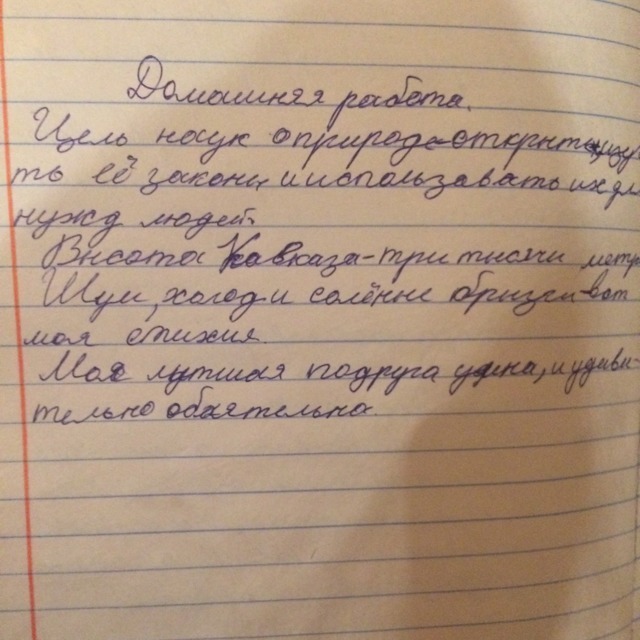 Домашняя работа.
Цель наук о природе-открыть, изучи
ть её законы и использовать их для
нужд людей.
Высота Кавказа-три тысячи метр
Шум, холод и солённые брызги-вот
моя стихия.
Моя лутшая подруга умна, и удиви-
тельно обаятельна